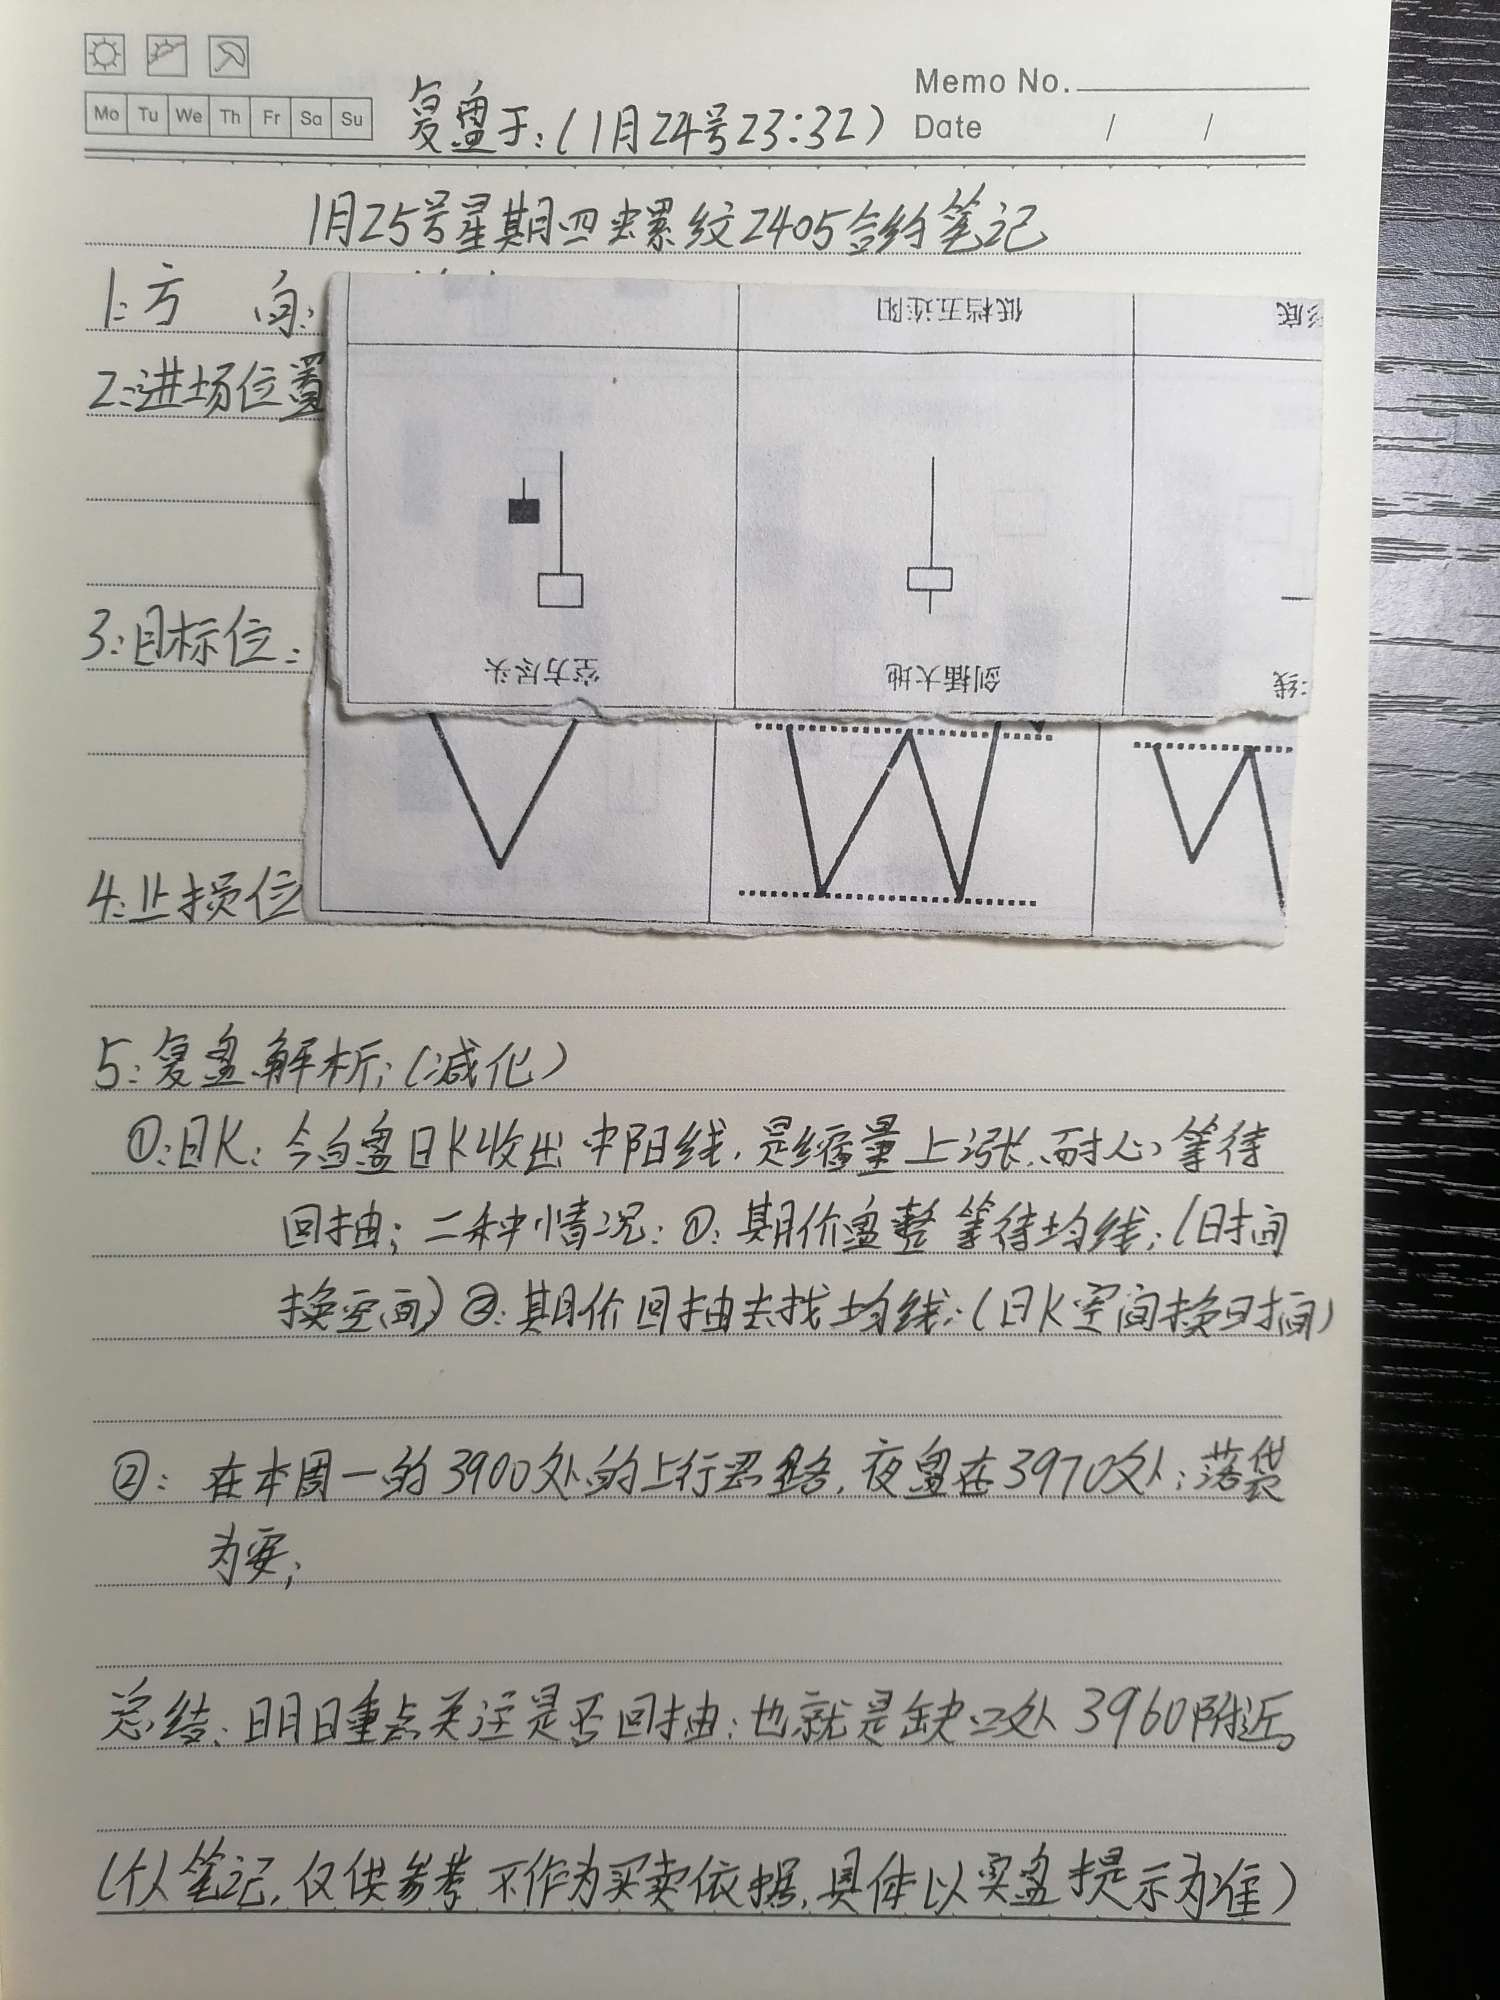 Memo No.
Mo Tu We Th Fr Sa Su
复盘于:(1月24号23:32)
Date / /
1月25号星期四螺纹2405合约笔记
1:方 向:
低档五连阳
底
2:进场位置
3:目标位:
空方尽头
剑插大地
线
4:止损位
5:复盘解析:(减化)
①:日K:今白盘日K收出中阳线,是缩量上涨,耐心等待
回抽;二种情况:①:期价盘整等待均线;(时间
换空间)②:期价回抽去找均线;(日K空间换时间)
②:在本周一的3900处的上行思路,夜盘在3970处;落袋
为安;
总结:明日重点关注是否回抽;也就是缺口处3960附近。
(个人笔记,仅供参考不作为买卖依据,具体以实盘提示为准)